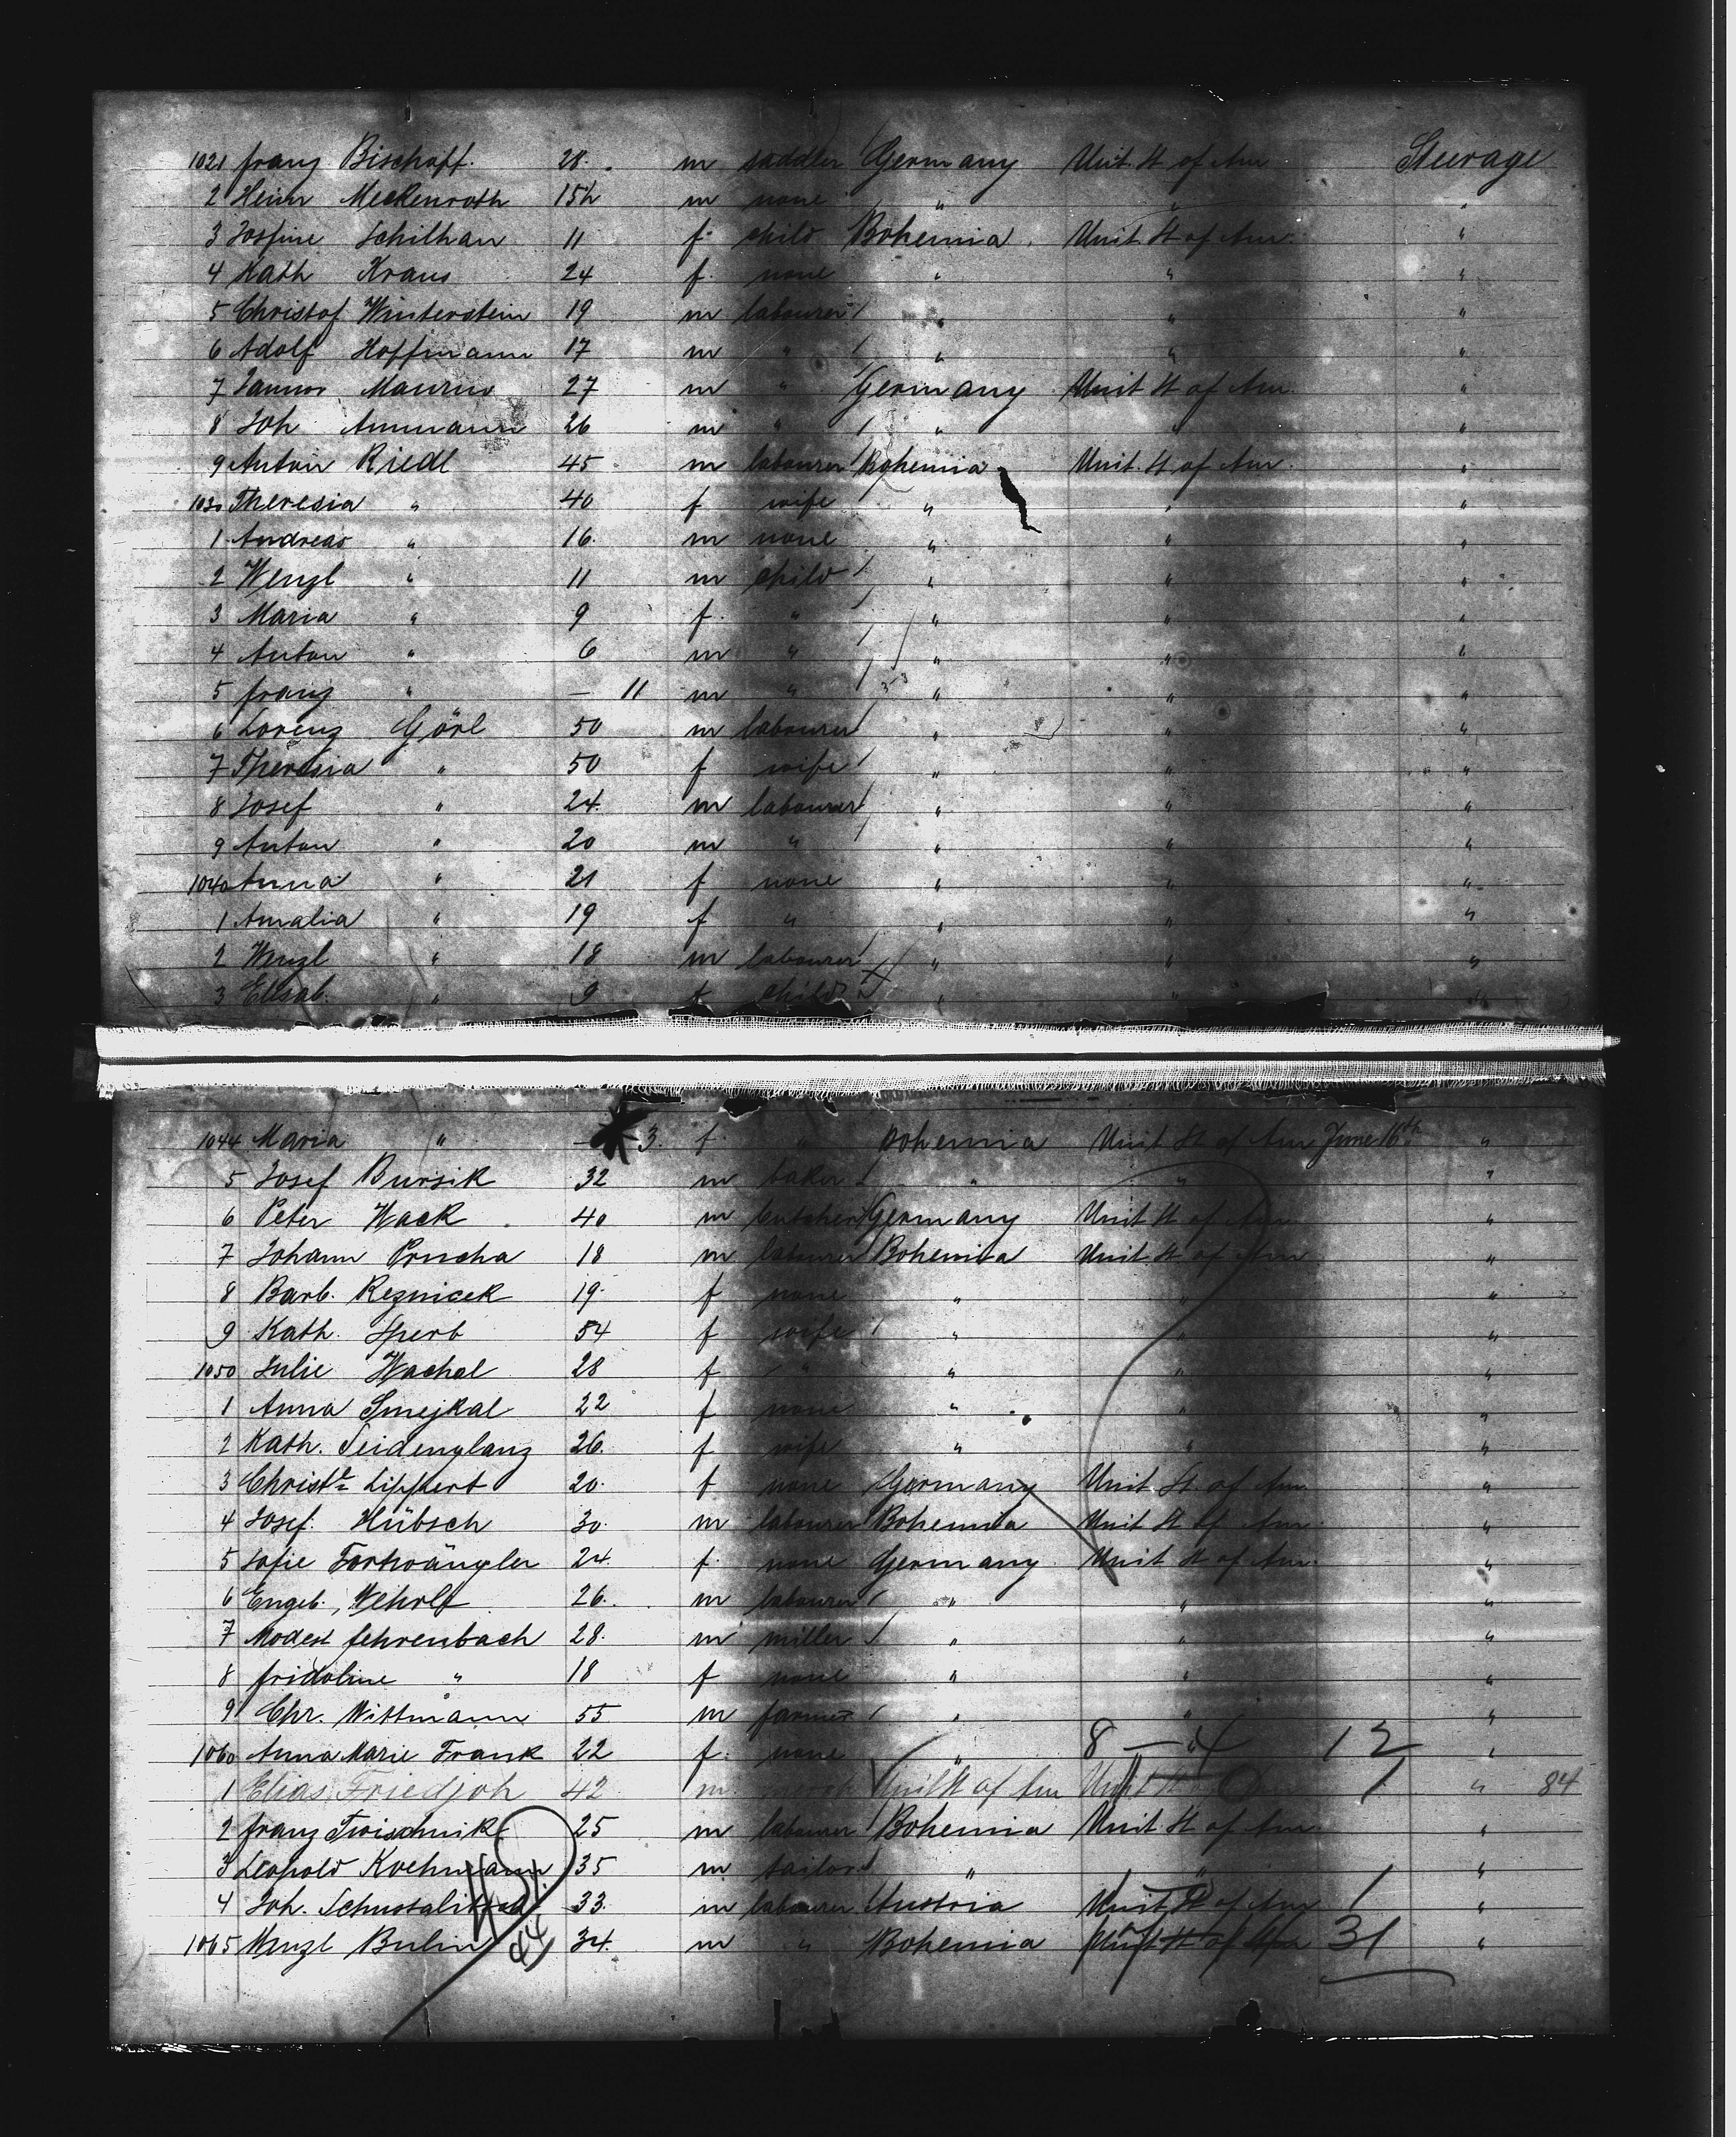 1021 Franz Bischoff. 28. m saddler Germany Unit. St of Am Steerage
2 Heinr Meckenroth 15½ m none " " "
3 Josfine Schilhan 11 f. child Bohemia. Unit St of Am. "
4 Kath Kraus 24 f. none " " "
5 Christof Winterstein 19 m labourer " " "
6 Adolf Hoffmann 17 m " " " "
7 Maurus 27 m " Germany Unit St of Am. "
8 Joh Ammann 26 m " " " "
9 Anton Riedl 45 m labourer Bohemia Unit. St of Am. "
1030 Theresia " 40 f wife " " "
1 Andreas " 16. m none " " "
2 Wenzl " 11 m child " " "
3 Maria " 9 f. " " " "
4 Anton " 6 m " " " "
5 Franz " — 11 m " " " "
6 Lorenz Görl 50 m labourer " " "
7 Theresia " 50 f wife " " "
8 Josef " 24. m labourer " " "
9 Anton " 20 m " " " "
1040 Anna " 21 f none " " "
1 Amalia " 19 f " " " "
2 Wenzl " 18 m labourer " " "
3 Elisab. " 9 f child " " "
1044 Maria " — 3. f. " Bohemia Unit St of Am June 16th "
5 Josef Bursik 32 m baker " " "
6 Peter Wack 40 m butcher Germany Unit St of Am "
7 Johann Prucha 18 m labourer Bohemia Unit St of Am "
8 Barb. Reznicek 19. f none " " "
9 Kath. Sperb 54 f wife " " "
1050 Julie Wachal 28 f " " " "
1 Anna Smejkal 22 f none " " "
2 Kath. Seidenglanz 26. f wife " " "
3 Christe Lippert 20. f none Germany Unit St. of Am "
4 Josef. Hübsch 30. m labourer Bohemia Unit St of Am. "
5 Sofie Fortwängler 24. f. none Germany Unit St of Am. "
6 Engelb. 26. m labourer " " "
7 Modest Fehrenbach 28. m miller " " "
8 Fridoline " 18 f none " " "
9 Chr. Wittmann 55 m farmer " " "
1060 Anna Marie Frank 22 f. none " 8 — 4 12 "
1 Elias Friedjoh 42 m Unit St of Am Unit St 1 " 84
2 Franz 25 m labourer Bohemia Unit St of Am. "
3 Leopold 35 m tailor " " "
4 Joh. 33. m labourer Austria Unit St of Am 1 "
1065 Wenzl Bulin 44 34. m " Bohemia Unit St of Am 31 "